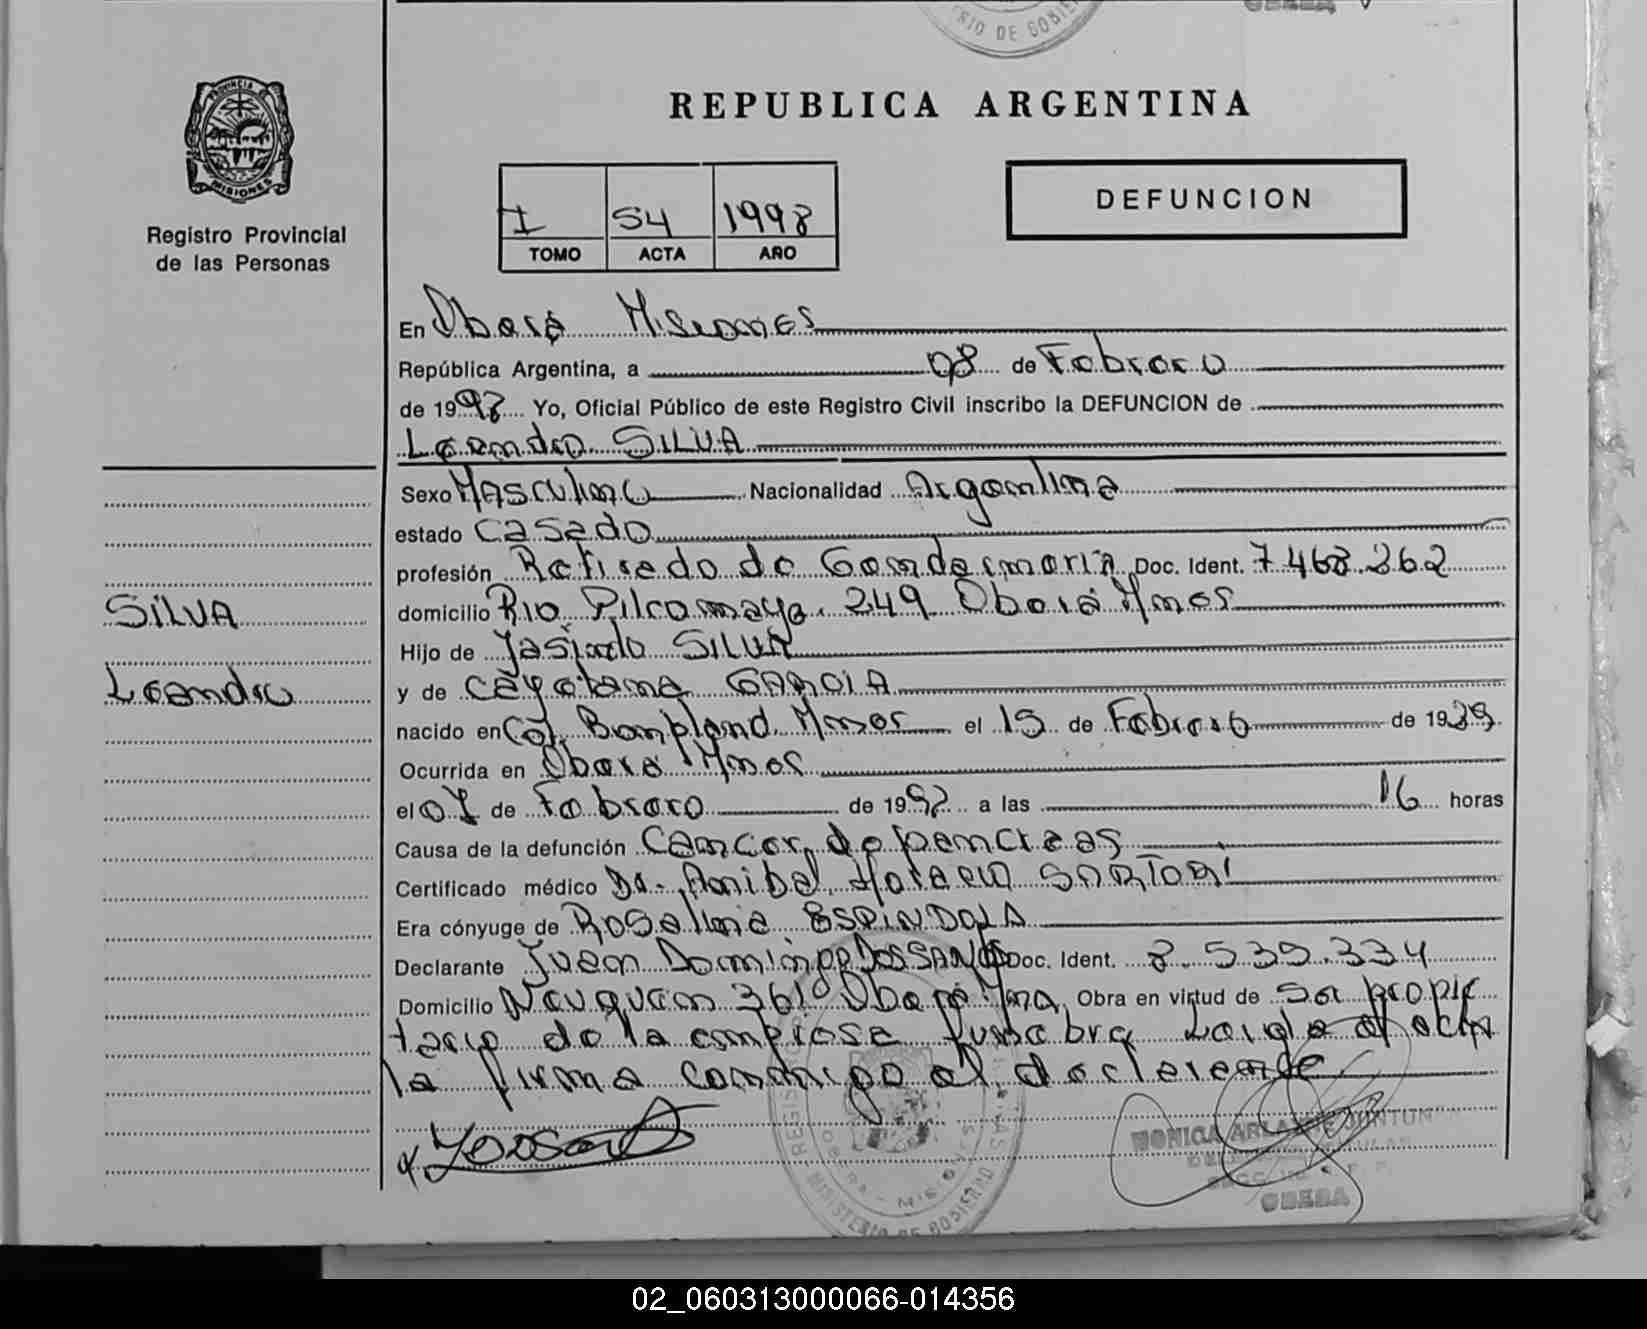 RIO DE GOBIE
OBERA
PROVINCIA D
MISIONES
Registro Provincial
de las Personas
REPUBLICA ARGENTINA
I 54 1998
TOMO ACTA AÑO
DEFUNCION
En Oberá Misiones
República Argentina, a 08 de Febrero
de 1998 Yo, Oficial Público de este Registro Civil inscribo la DEFUNCION de
Leandro SILVA
Sexo Masculino Nacionalidad Argentina
estado Casado
profesión Retirado de Gendarmería Doc. Ident. 7.468.262
domicilio Rio Pilcomayo 249 Oberá Mnes
SILVA
Hijo de Jasinto SILVA
Leandro
y de Cayetana GARCIA
nacido en Col. Bompland Mnes el 15 de Febrero de 1939
Ocurrida en Oberá Mnes
el 07 de Febrero de 1998 a las 16 horas
Causa de la defunción Cancer de pancreas
Certificado médico Dr. Anibal Horacio SARTORI
Era cónyuge de Roselina ESPINDOLA
Declarante Juan Domingo DOSSANTOS Doc. Ident. 8.539.334
Domicilio Neuquen 361 Oberá Mnes Obra en virtud de ser propie
tario de la empresa funebre Leida el acta
la firma conmigo el declarante
MONICA
OBERA
REGIS
MINISTERIO DE GOBIERNO
OBERA - MISIONES
02_060313000066-014356